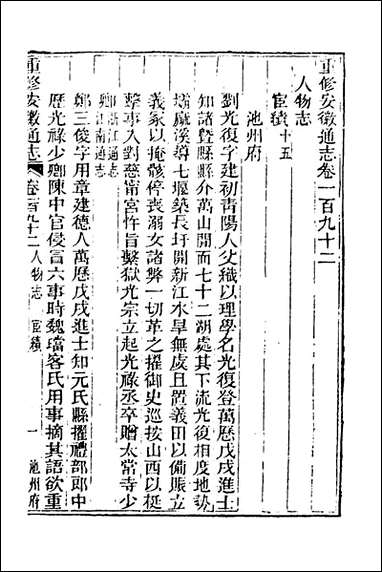 重修安徽通志卷一百九十二
人物志
宦績十五
池州府
劉光復字建初青陽人父織以理學名光復登萬歷戊戌進士
知諸暨縣縣介萬山開而七十二湖處其下流光復相度地勢
壩麻溪導七堰築長圩開新江水旱無虞且置義田以備賑立
義冢以掩骸停喪溺女諸弊一切革之擢御史巡按山西以梃
擊事入對慈甯宮忤旨繫獄光宗立起光祿丞卒贈太常寺少
卿浙江通志
江南通志
鄭三俊字用章建德人萬歷戊戌進士知元氏縣擢禮部郎中
歷光祿少卿陳中官侵言六事時魏璫客氏用事摘其語欲重
重修安徽通志 卷一百九十二 人物志 宦績 一 池州府